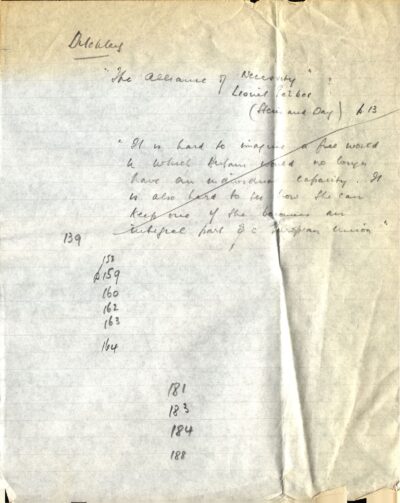 Ditchley
"The Alliance of Necessity"
Lionel Gelber
(Stein and Day) p 13
"It is hard to imagine a free world
in which Britain would no longer
have an individual capacity. It
is also hard to see how she can
keep one if she becomes an
integral part of a European Union"
139
158
p159
160
162
163
164
181
183
184
188